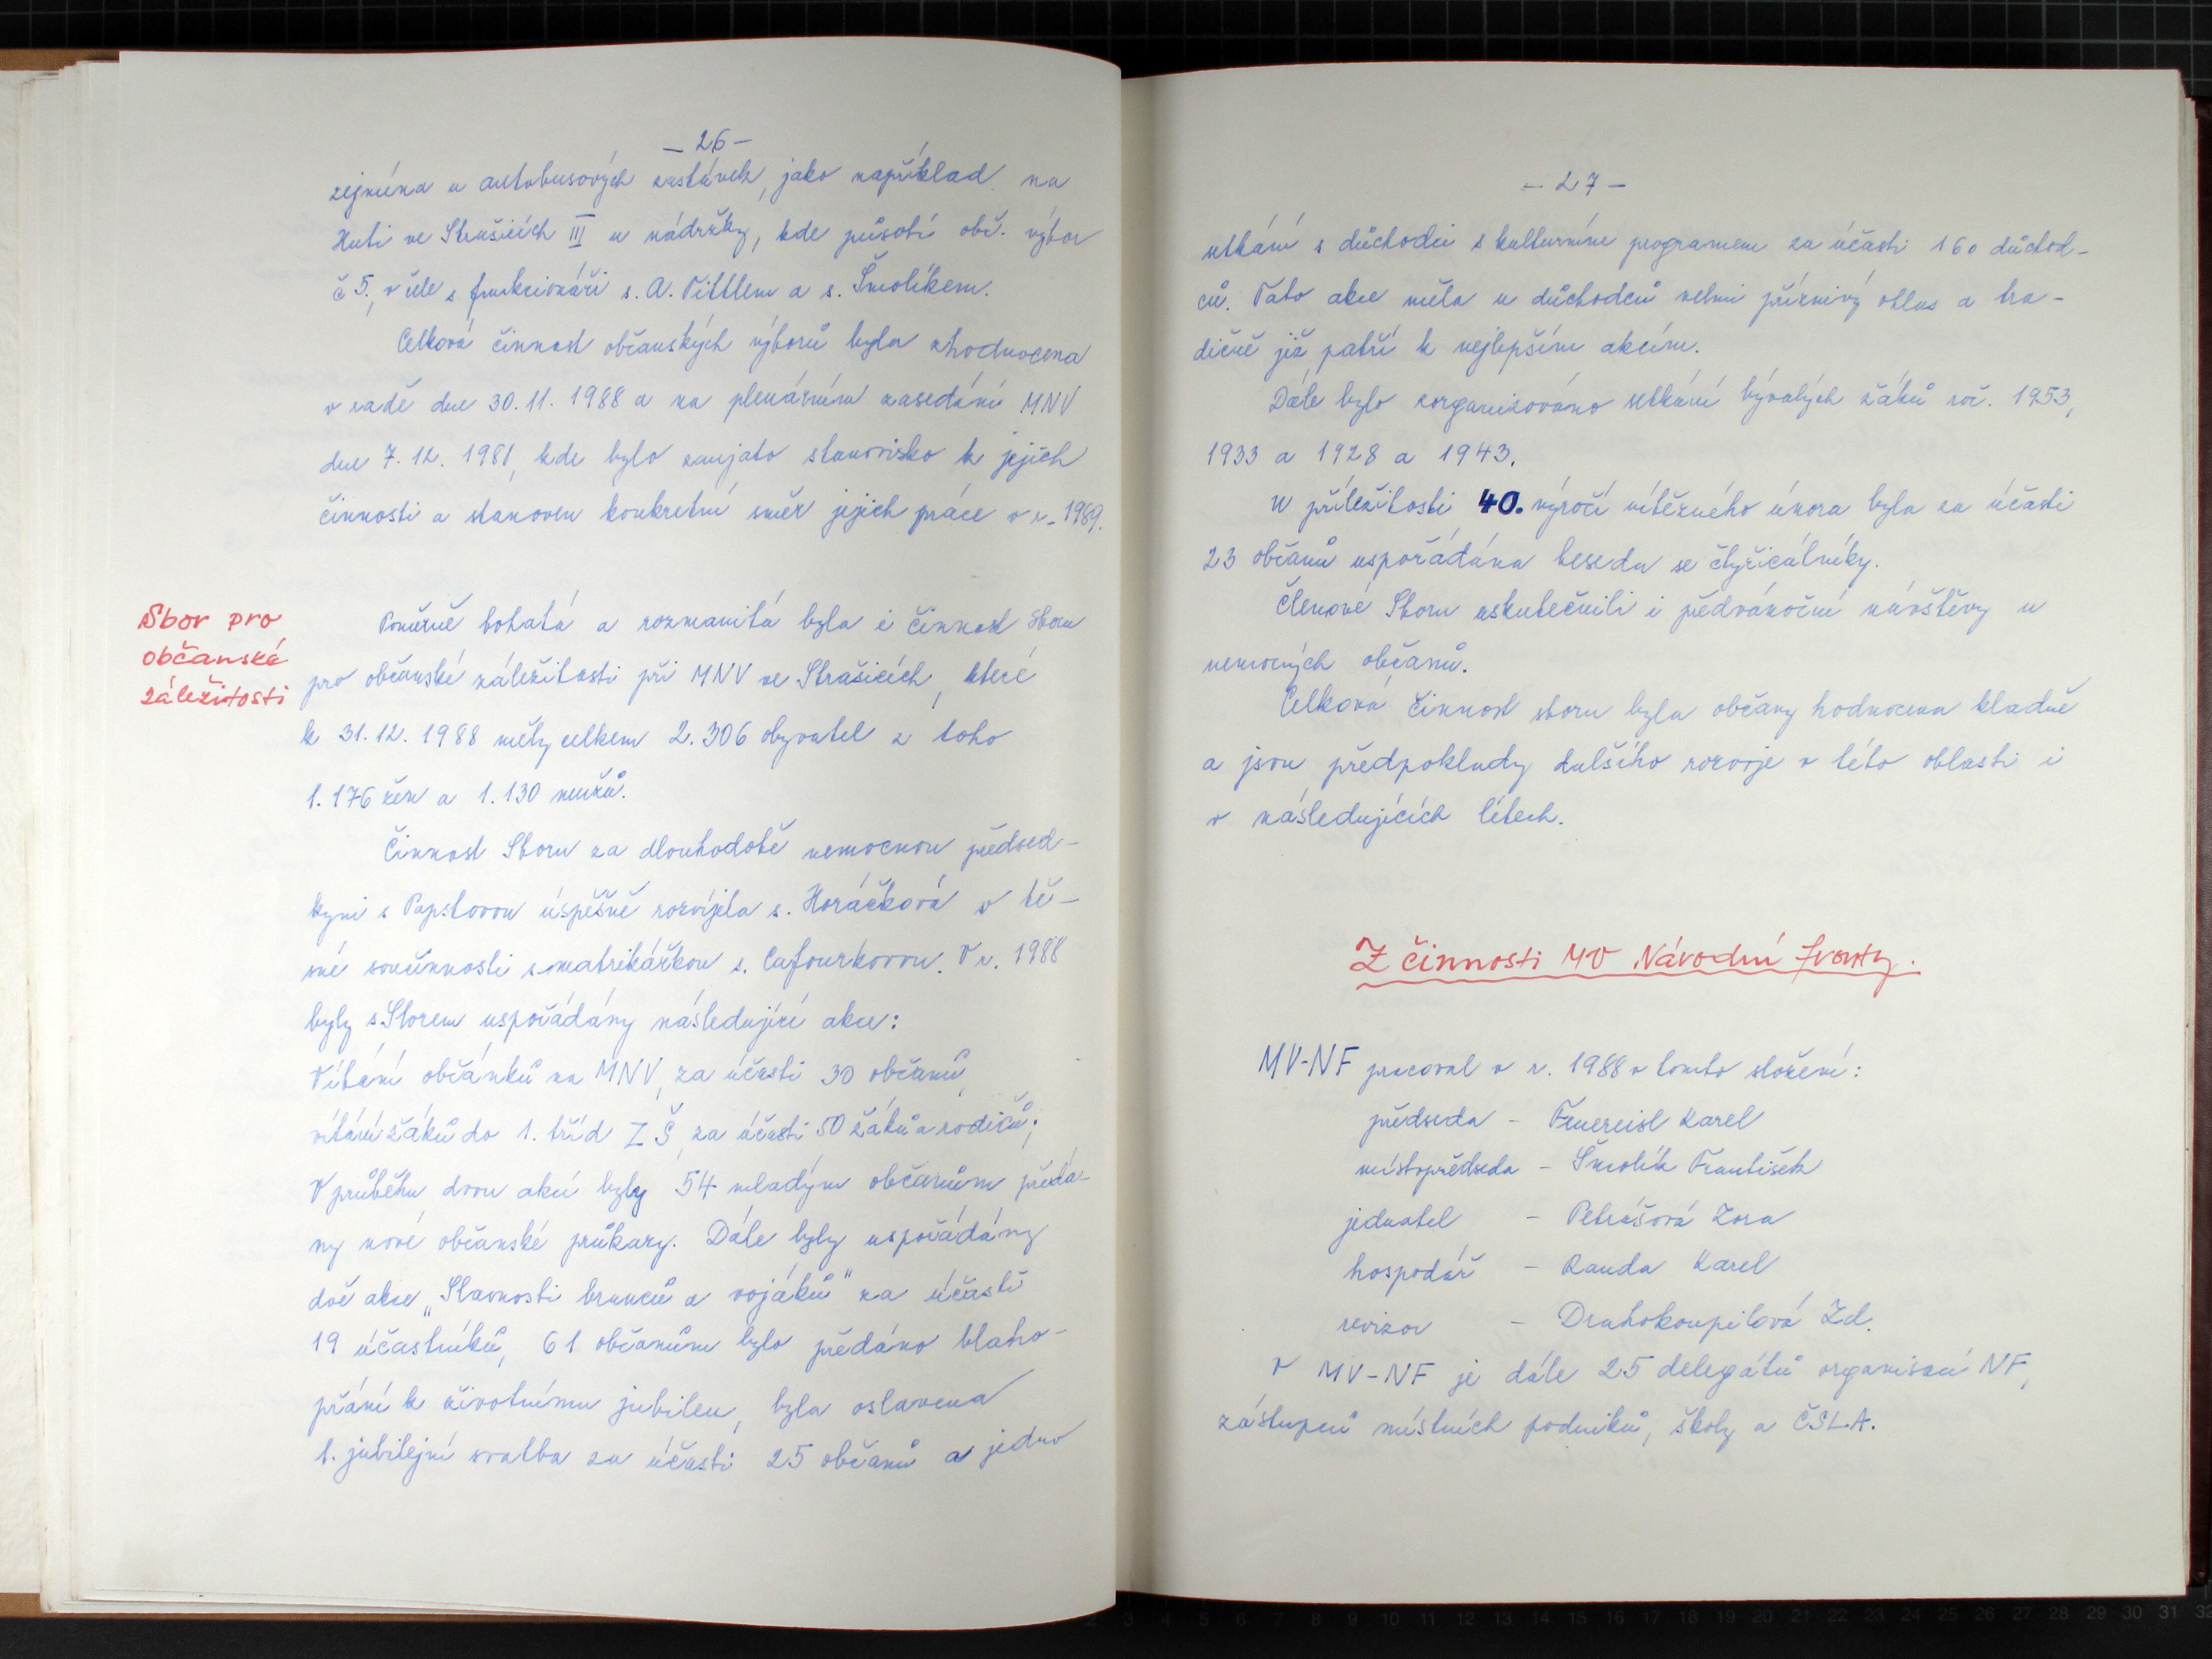 - 26 -
zejména u autobusových zastávek, jako například na
Huti ve Strašicích III u nádržky, kde působí obč. výbor
č 5., v čele s funkcionáři s. A. Tittlem a s. Šmolíkem.
Celková činnost občanských výborů byla zhodnocena
v radě dne 30. 11. 1988 a na plenárním zasedání MNV
dne 7. 12. 1981, kde bylo zaujato stanovisko k jejich
činnosti a stanoven konkretní směr jejich práce v r. 1989.
Sbor pro
občanské
záležitosti
Poměrně bohatá a rozmanitá byla i činnost Sboru
pro občanské záležitosti při MNV ve Strašicích, které
k 31. 12. 1988 měly celkem 2.306 obyvatel z toho
1.176 žen a 1.130 mužů.
Činnost Sboru za dlouhodobě nemocnou předsed-
kyni s Papstovou úspěšně rozvíjela s. Horáčková v tě-
sné součinnosti s matrikářkou s. Cafourkovou. V r. 1988
byly s Sborem uspořádány následující akce:
Vítání občánků na MNV, za účasti 30 občanů,
vítání žáků do 1. tříd ZŠ, za účasti 50 žáků a rodičů;
V průběhu dvou akcí byly 54 mladým občanům předá-
ny nové občanské průkazy. Dále byly uspořádány
dvě akce „Slavnosti branců a vojáků" za účasti
19 účastníků, 61 občanům bylo předáno blaho-
přání k životnímu jubileu, byla oslavena
1. jubilejní svatba za účasti 25 občanů a jedno
- 27 -
utkání s důchodci s kulturním programem za účasti 160 důchod-
ců. Tato akce měla u důchodců velmi příznivý ohlas a tra-
dičně již patří k nejlepším akcím.
Dále bylo zorganizováno setkání bývalých žáků roč. 1953,
1933 a 1928 a 1943.
U příležitosti 40. výročí vítězného února byla za účasti
23 občanů uspořádána beseda se čtyřicátníky.
Členové Sboru uskutečnili i předvánoční návštěvy u
nemocných občanů.
Celková činnost sboru byla občany hodnocena kladně
a jsou předpoklady dalšího rozvoje v této oblasti i
v následujících létech.
Z činnosti MV Národní fronty.
MV-NF pracoval v r. 1988 v tomto složení:
předseda - Feuereisl Karel
místopředseda - Šmolík František
jednatel - Petrášová Zora
hospodář - Randa Karel
revizor - Drahokoupilová Zd.
V MV-NF je dále 25 delegátů organisací NF,
zástupců místních podniků, školy a ČSLA.